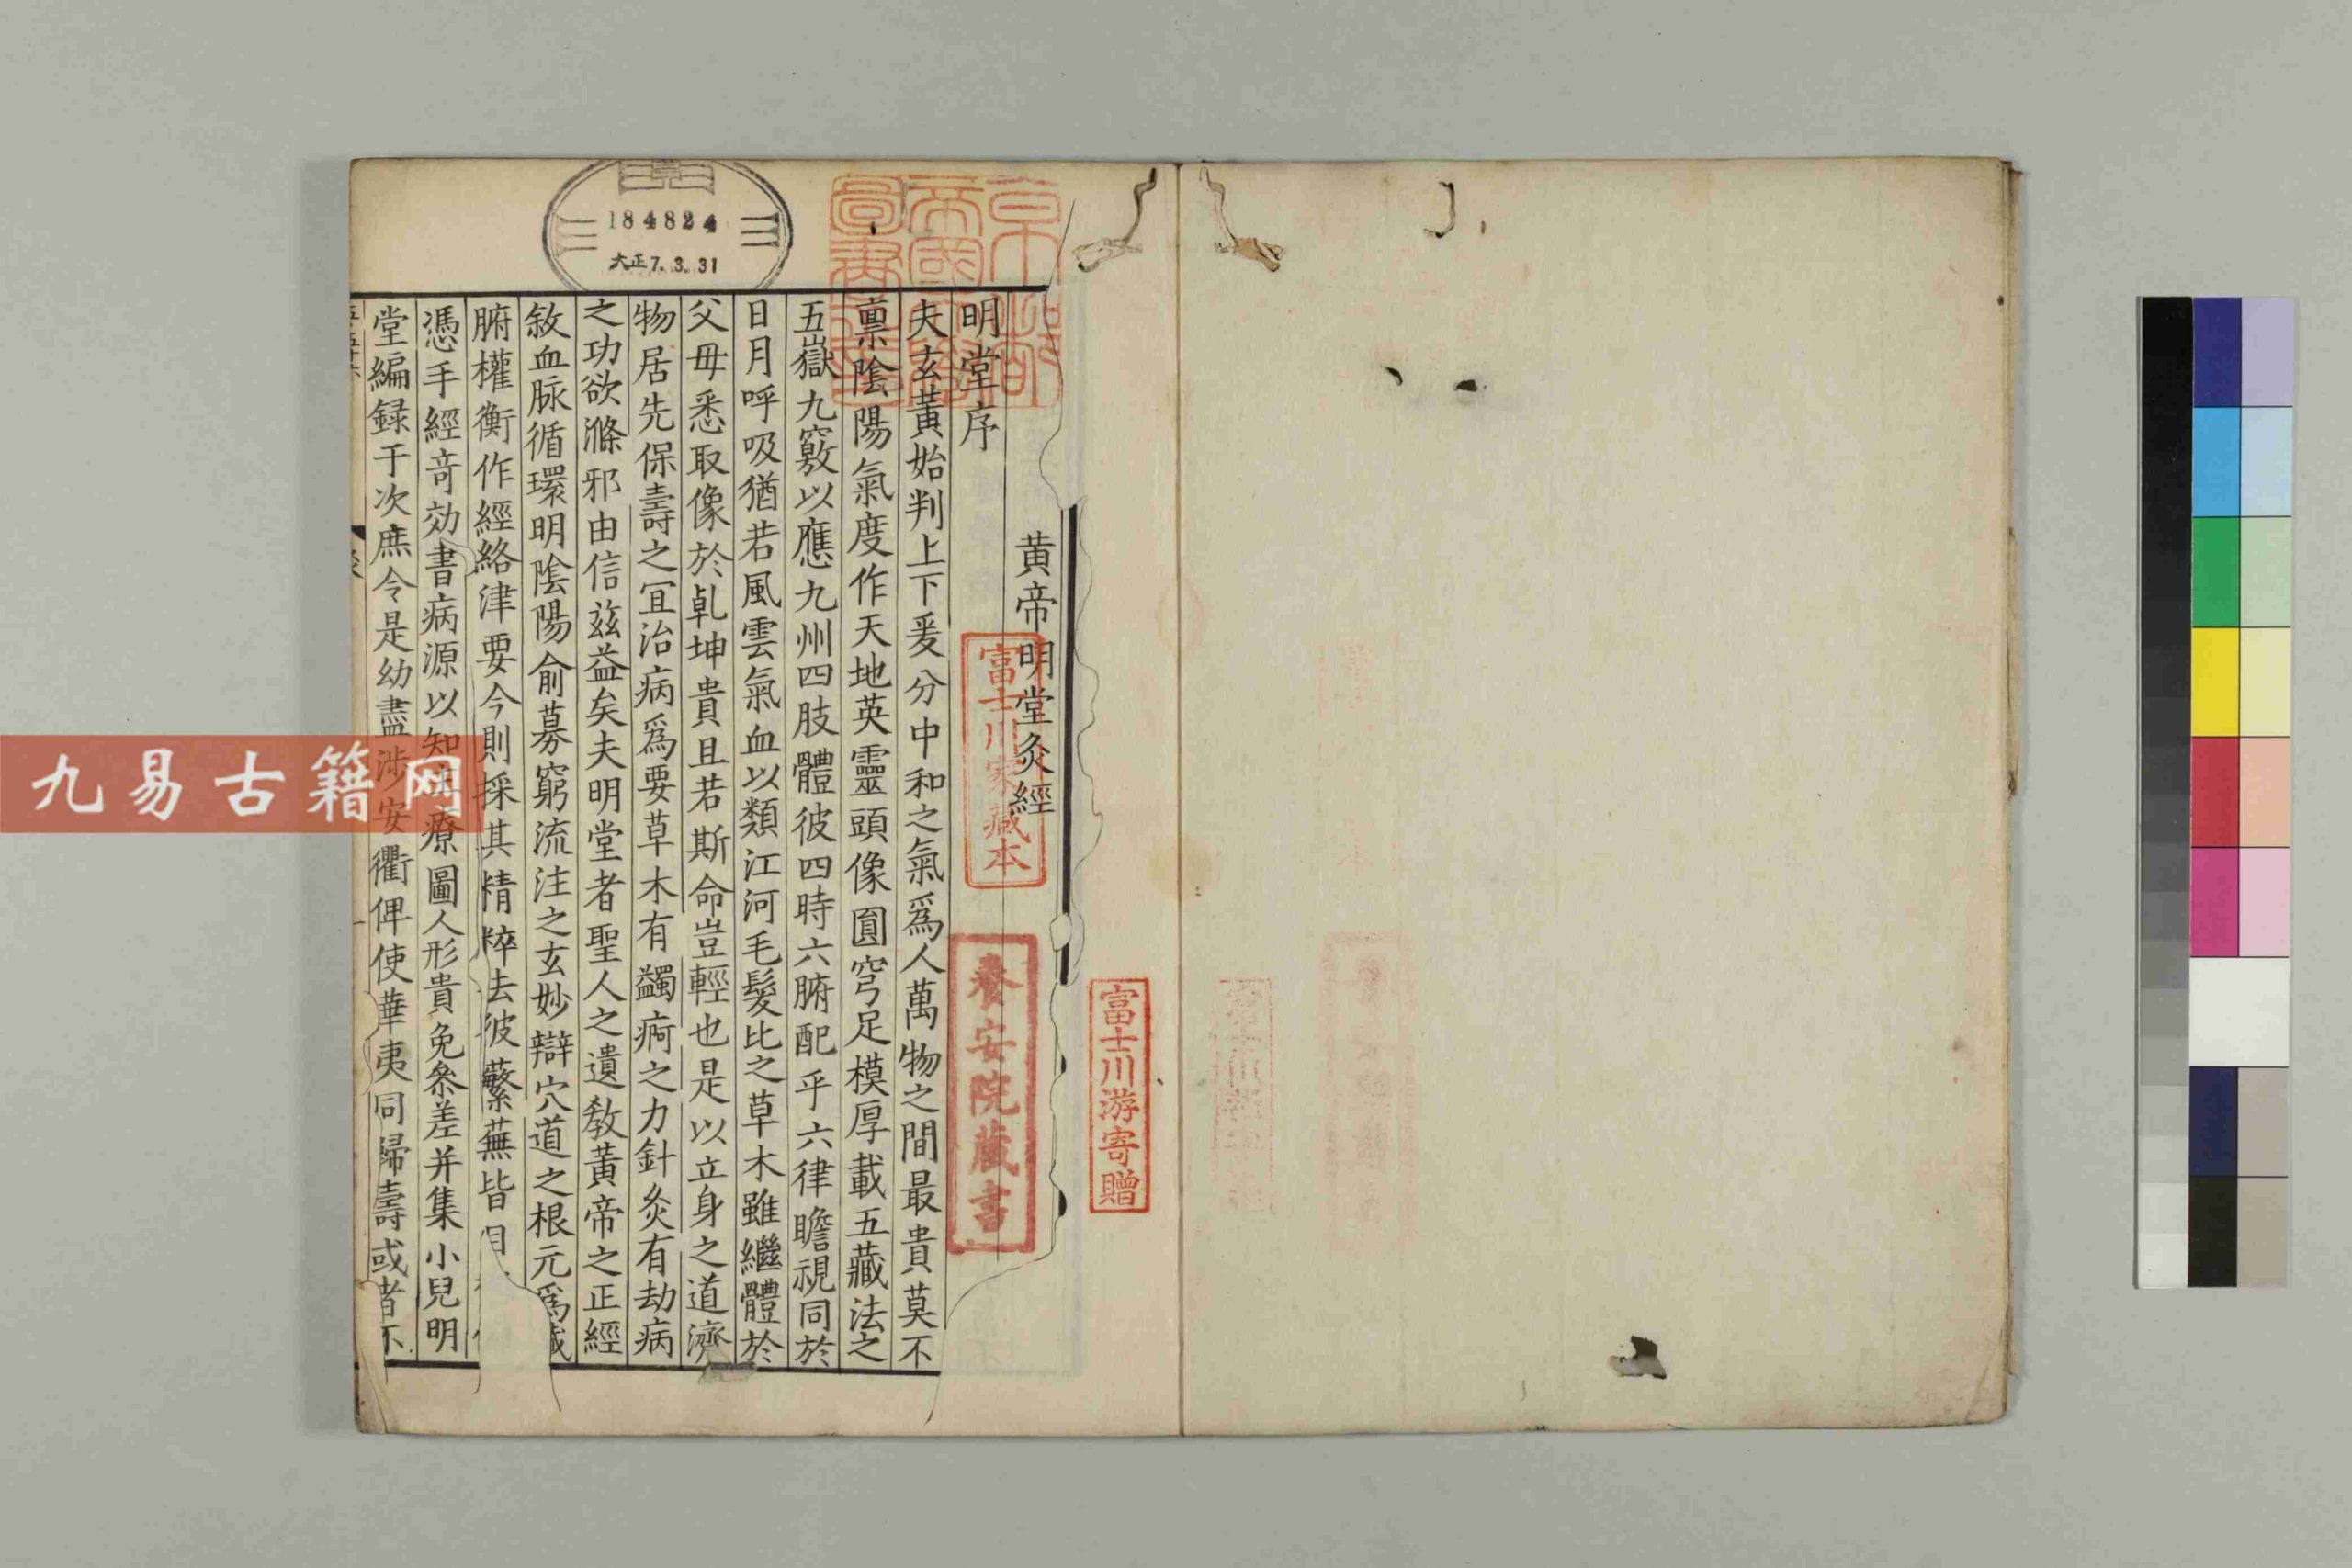 黄帝明堂灸經
明堂序
夫玄黃始判上下爰分中和之氣爲人萬物之間最貴莫不
禀隂陽氣度作天地英靈頭像圓穹足模厚載五藏法之
五嶽九竅以應九州四肢體彼四時六腑配乎六律瞻視同於
日月呼吸猶若風雲氣血以類江河毛髮比之草木雖繼體於
父毋悉取像於乹坤貴且若斯命豈輕也是以立身之道濟
物居先保壽之冝治病爲要草木有蠲痾之力針灸有劫病
之功欲滌邪由信兹益矣夫明堂者聖人之遺教黃帝之正經
敘血脉循環明隂陽俞募窮流注之玄妙辯穴道之根元爲
腑權衡作經絡津要今則採其精粹去彼蘩蕪皆
憑手經竒効書病源以知療圖人形貴免叅差并集小兒明
堂編録于次庶令是幼盡涉安衢俾使華夷同歸壽或者不
京都帝國大學圖書之印
184824
大正7.3.31
富士川家藏本
養安院藏書
富士川游寄贈
九易古籍网